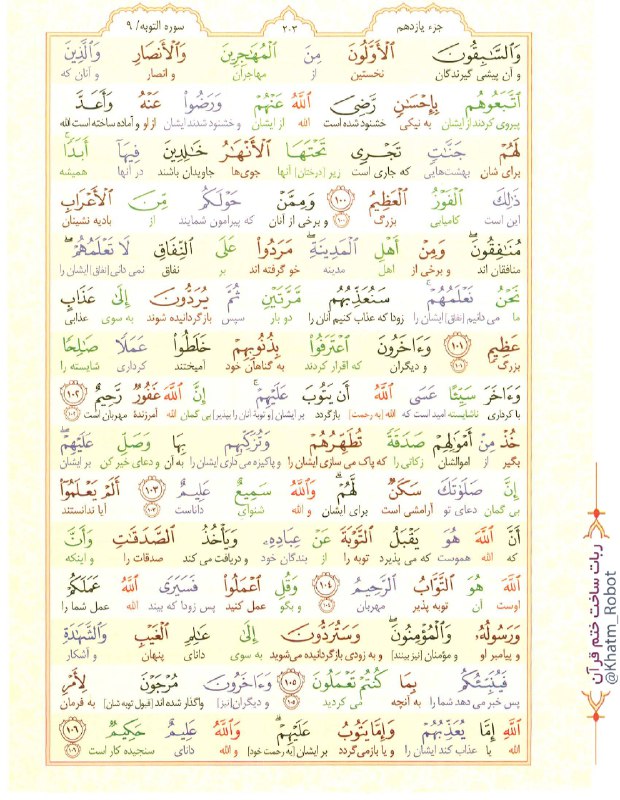 جزء یازدهم
٢٠٣
سوره التوبه/ ٩
وَالسَّٰبِقُونَ الْأَوَّلُونَ مِنَ الْمُهَٰجِرِينَ وَالْأَنصَارِ وَالَّذِينَ
و آن پیشی گیرندگان نخستین از مهاجران و انصار و آنان که
اتَّبَعُوهُم بِإِحْسَٰنٍ رَّضِيَ اللَّهُ عَنْهُمْ وَرَضُوا عَنْهُ وَأَعَدَّ
پیروی کردند از ایشان به نیکی خشنود شده است الله از ایشان و خشنود شدند ایشان از او و آماده ساخته است الله
لَهُمْ جَنَّٰتٍ تَجْرِي تَحْتَهَا الْأَنْهَٰرُ خَٰلِدِينَ فِيهَا أَبَدًا ۚ
برای شان بهشت‌هایی که جاری است زیر [درختان] آنها جوی‌ها جاویدان باشند در آنها همیشه
ذَٰلِكَ الْفَوْزُ الْعَظِيمُ ١٠٠ وَمِمَّنْ حَوْلَكُم مِّنَ الْأَعْرَابِ
این است کامیابی بزرگ ١٠٠ و برخی از آنان که پیرامون شمایند از بادیه نشینان
مُنَٰفِقُونَ ۖ وَمِنْ أَهْلِ الْمَدِينَةِ ۖ مَرَدُوا عَلَى النِّفَاقِ لَا تَعْلَمُهُمْ ۖ
منافقان اند و برخی از اهل مدینه خو گرفته اند بر نفاق نمی دانی [نفاق] ایشان را
نَحْنُ نَعْلَمُهُمْ ۚ سَنُعَذِّبُهُم مَّرَّتَيْنِ ثُمَّ يُرَدُّونَ إِلَىٰ عَذَابٍ
ما می دانیم [نفاق] ایشان را زودا که عذاب کنیم آنان را دو بار سپس بازگردانیده شوند به سوی عذابی
عَظِيمٍ ١٠١ وَءَاخَرُونَ اعْتَرَفُوا بِذُنُوبِهِمْ خَلَطُوا عَمَلًا صَٰلِحًا
بزرگ ١٠١ و دیگران که اقرار کردند به گناهان خود آمیختند کرداری شایسته را
وَءَاخَرَ سَيِّئًا عَسَى اللَّهُ أَن يَتُوبَ عَلَيْهِمْ ۚ إِنَّ اللَّهَ غَفُورٌ رَّحِيمٌ ١٠٢
با کرداری ناشایسته امید است که الله [به رحمت] بازگردد بر ایشان [و توبۀ آنان را بپذیرد] بی گمان الله آمرزندۀ مهربان است ١٠٢
خُذْ مِنْ أَمْوَٰلِهِمْ صَدَقَةً تُطَهِّرُهُمْ وَتُزَكِّيهِم بِهَا وَصَلِّ عَلَيْهِمْ ۖ
بگیر از اموالشان زکاتی را که پاک می سازی ایشان را و پاکیزه می داری ایشان را به آن و دعای خیر کن بر ایشان
إِنَّ صَلَوٰتَكَ سَكَنٌ لَّهُمْ ۗ وَاللَّهُ سَمِيعٌ عَلِيمٌ ١٠٣ أَلَمْ يَعْلَمُوا
بی گمان دعای تو آرامشی است برای ایشان و الله شنوای داناست ١٠٣ آیا ندانستند
أَنَّ اللَّهَ هُوَ يَقْبَلُ التَّوْبَةَ عَنْ عِبَادِهِۦ وَيَأْخُذُ الصَّدَقَٰتِ وَأَنَّ
که الله هموست که می پذیرد توبه را از بندگان خود و دریافت می کند صدقات را و اینکه
اللَّهَ هُوَ التَّوَّابُ الرَّحِيمُ ١٠٤ وَقُلِ اعْمَلُوا فَسَيَرَى اللَّهُ عَمَلَكُمْ
اوست آن توبه پذیر مهربان ١٠٤ و بگو عمل کنید پس زودا که بیند الله عمل شما را
وَرَسُولُهُۥ وَالْمُؤْمِنُونَ ۖ وَسَتُرَدُّونَ إِلَىٰ عَٰلِمِ الْغَيْبِ وَالشَّهَٰدَةِ
و پیامبر او و مؤمنان [نیز بینند] و به زودی بازگردانیده می‌شوید به سوی دانای پنهان و آشکار
فَيُنَبِّئُكُم بِمَا كُنتُمْ تَعْمَلُونَ ١٠٥ وَءَاخَرُونَ مُرْجَوْنَ لِأَمْرِ
پس خبر می دهد شما را به آنچه می کردید ١٠٥ و دیگران [نیز] واگذار شده اند [قبول توبه شان] به فرمان
اللَّهِ إِمَّا يُعَذِّبُهُمْ وَإِمَّا يَتُوبُ عَلَيْهِمْ ۗ وَاللَّهُ عَلِيمٌ حَكِيمٌ ١٠٦
الله یا عذاب کند ایشان را و یا بازمی گردد بر ایشان [به رحمت خود] و الله دانای سنجیده کار است ١٠٦
ربات ساخت ختم قرآن
@Khatm_Robot